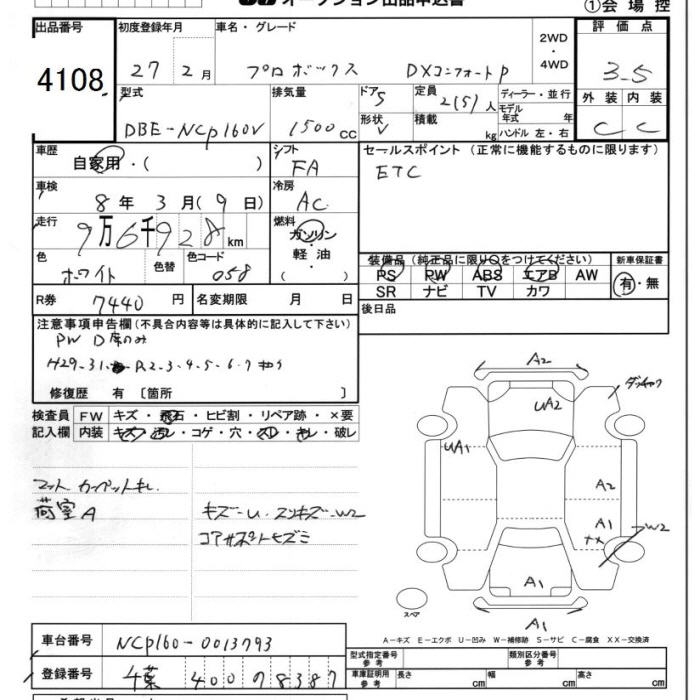 オークション出品申込書 ①会場控
出品番号 初度登録年月 車名・グレード 2WD・4WD 評価点
4108 27年 2月 プロボックス DXコンフォートP 3.5
型式 排気量 ドア 定員 ディーラー・並行 外装 内装
DBE-NCP160V 1500cc 5 2(5)人 モデル年式 年
形状 V 積載 kg ハンドル 左・右 C C
車歴 シフト セールスポイント (正常に機能するものに限ります)
自家用・( ) FA ETC
車検 冷房
8年 3月(9日) AC
走行 燃料
9万6千928km ガソリン・軽油・( )
色 色替 色コード 装備品 (純正品に限り○をつけてください) 新車保証書
ホワイト 058 PS PW ABS エアB AW 有・無
SR ナビ TV カワ
R券 7440円 名変期限 月 日 後日品
注意事項申告欄(不具合内容等は具体的に記入して下さい)
PW D席のみ
修復歴 有 〔箇所 〕
検査員 FW キズ・飛石・ヒビ割・リペア跡・×要
記入欄 内装 キズ・汚レ・コゲ・穴・スレ・キレ・破レ
マット カーペットキレ
荷室A キズ-U・スリキズ-W2
コアサポートヒズミ
A2
UA2
UA1
A2
A1
W2
A1
スペア A1
A-キズ E-エクボ U-凹み W-補修跡 S-サビ C-腐食 XX-交換済
車台番号 NCP160-0013793 型式指定番号 参考 類別区分番号 参考
登録番号 千葉 400 ﾉ 8387 車庫証明用 参考 長さ cm 幅 cm 高さ cm